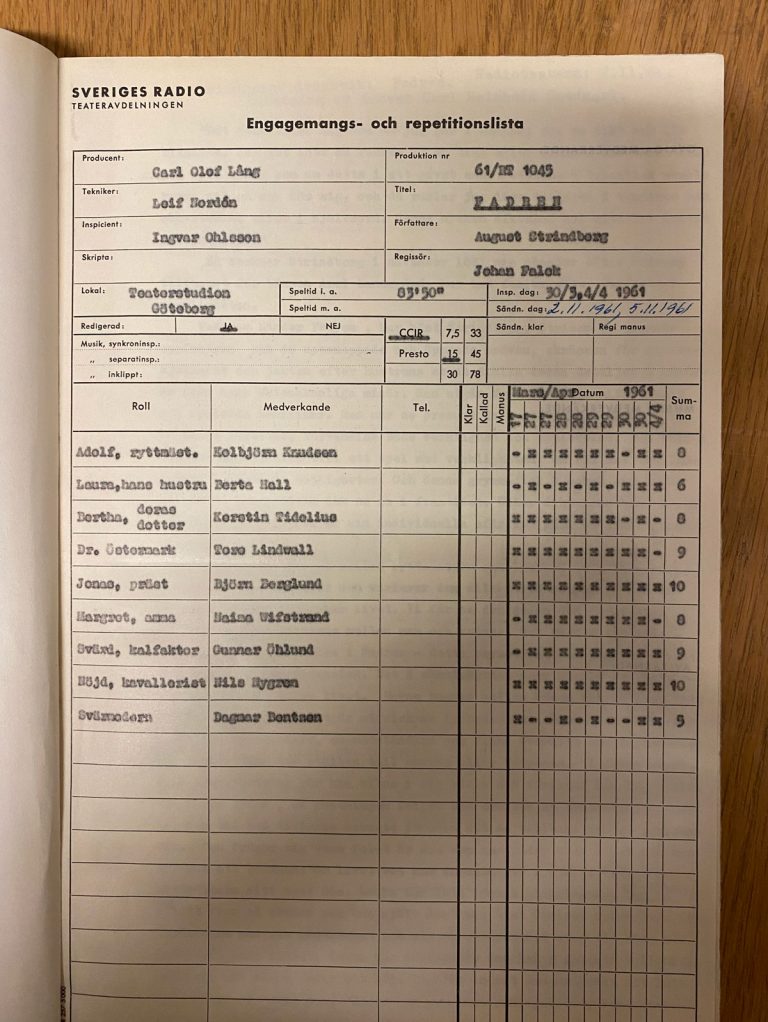 SVERIGES RADIO
TEATERAVDELNINGEN
Engagemangs- och repetitionslista
Producent: Carl Olof Lång
Produktion nr 61/RT 1045
Tekniker: Leif Nordén
Titel: FADREN
Inspicient: Ingvar Ohlsson
Författare: August Strindberg
Skripta:
Regissör: Johan Falck
Lokal: Teaterstudion Göteborg
Speltid i. a. 83'50"
Speltid m. a.
Insp. dag: 30/3,4/4 1961
Sändn. dag: 2.11.1961, 5.11.1961
Redigerad: JA NEJ
CCIR 7,5 33
Sändn. klar
Regi manus
Musik, synkroninsp.:
„ separatinsp.:
Presto 15 45
„ inklippt:
30 78
Roll Medverkande Tel. Klar Kallad Manus Mars/Apr Datum 1961 Summa
17 27 27 28 28 29 29 30 30 4/4
Adolf, ryttmäst. Kolbjörn Knudsen - x x x x x x - x x 8
Laura,hans hustru Berta Hall - x - x - x - x x x 6
Bertha, deras dotter Kerstin Tidelius x x x x x x x - x - 8
Dr. Östermark Tore Lindwall x x x x x x x x x - 9
Jonas, präst Björn Berglund x x x x x x x x x x 10
Margret, amma Naima Wifstrand - x x x x x x x x - 8
Svärd, kalfaktor Gunnar Öhlund - x x x x x x x x x 9
Nöjd, kavallerist Nils Nygren x x x x x x x x x x 10
Svärmodern Dagmar Bentzen x - - x - x - - x x 5